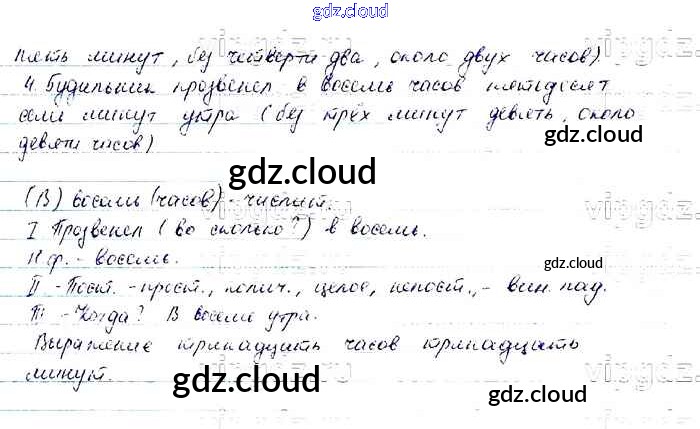 gdz.cloud
пять минут, без четверти два, около двух часов).
4. Будильник прозвенел в восемь часов пятьдесят
семь минут утра (без трёх минут девять, около
gdz.cloud
девяти часов)
gdz.cloud
(В) восемь (часов) - числит.
I Прозвенел (во сколько?) в восемь.
Н.ф. - восемь.
gdz.cloud
II - Пост. - прост., колич., целое, непост., - вин. пад.
III - Когда? В восемь утра.
Выражение тринадцать часов тринадцать
минут.
gdz.cloud
gdz.cloud